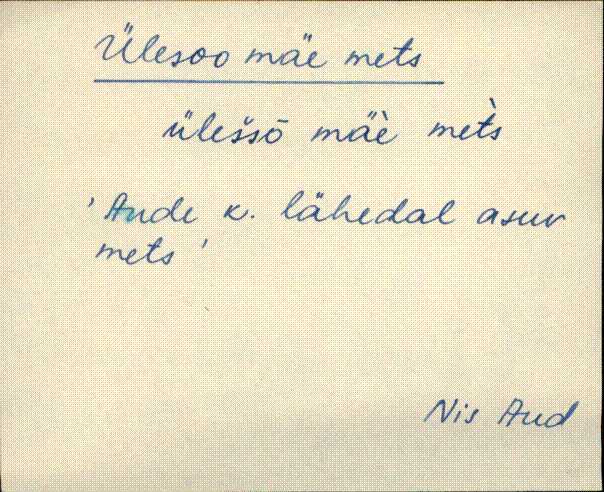 Ülesoo mäe mets
ülešsō mäè met̀s
'Aude k. lähedal asuv
mets'
Nis Aud